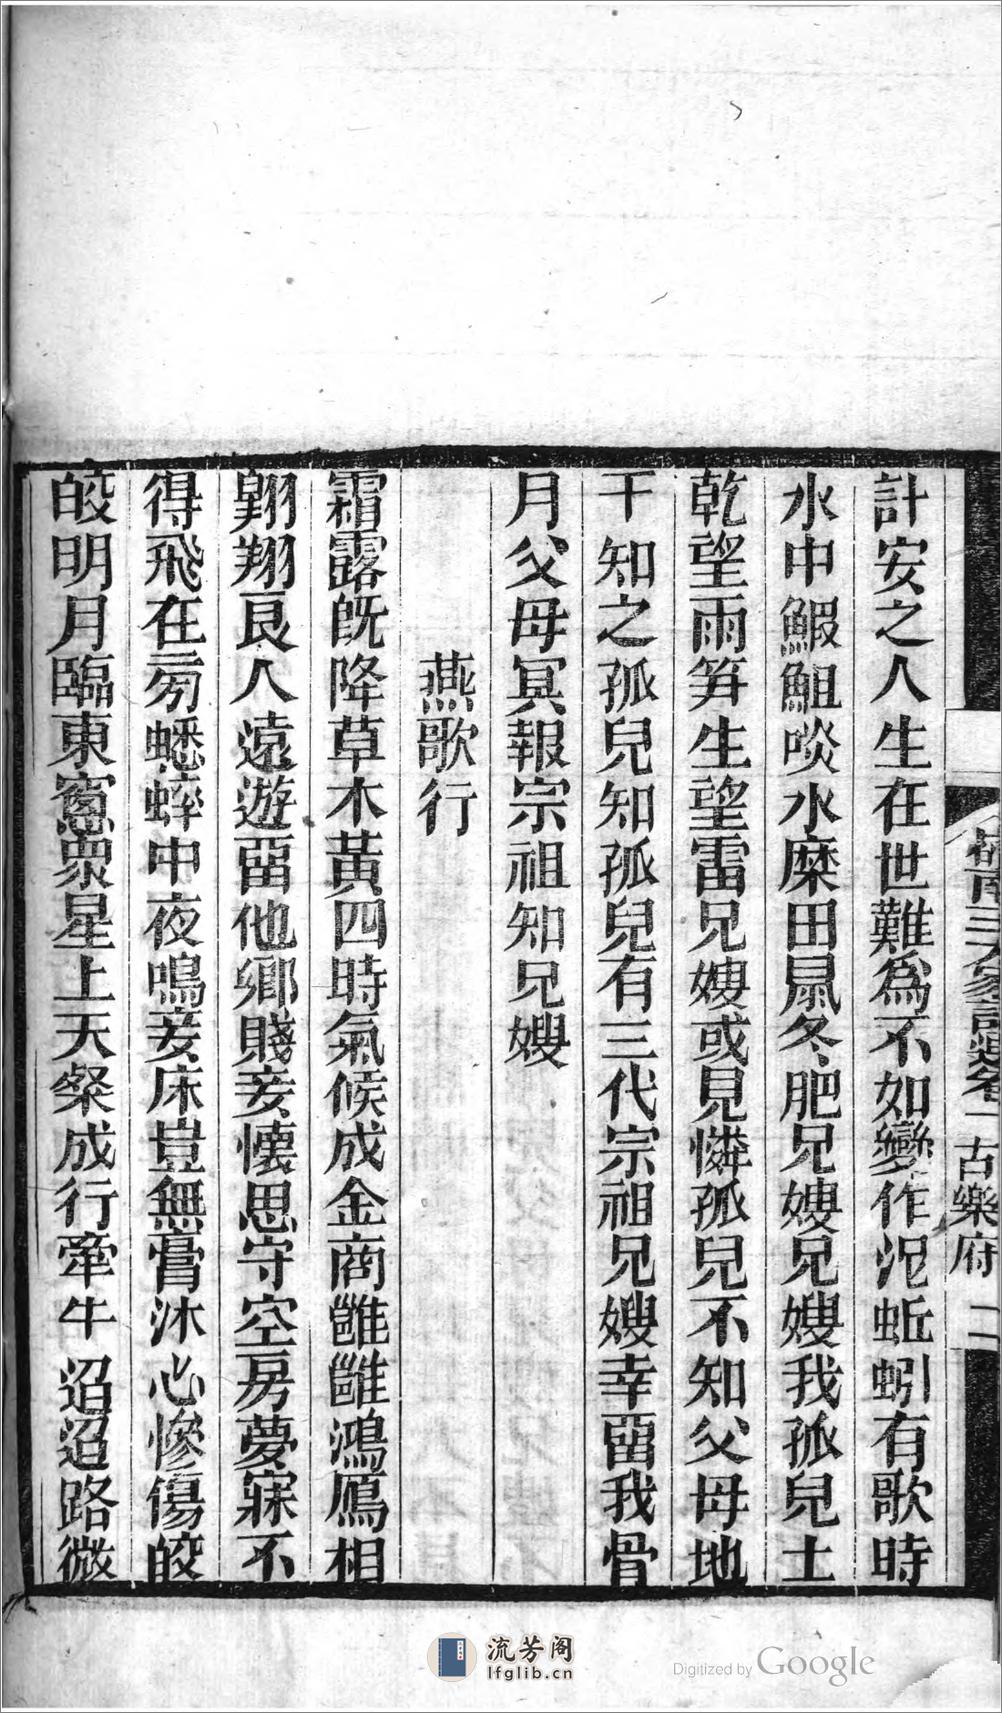 計安之人生在世難為不如變作泥蚯蚓有歌時
水中鰕䱉啖水糜田鼠冬肥兄嫂兄嫂我孤兒土
乾望雨笋生望雷兄嫂或見憐孤兒不知父母地
干知之孤兒知孤兒有三代宗祖兄嫂幸畱我骨
月父母冥報宗祖知兄嫂
燕歌行
霜露旣降草木黃四時氣候成金商雝雝鴻鴈相
翱翔良人遠遊畱他鄉賤妾懐思守空房夢寐不
得飛在旁蟋蟀中夜鳴妾床豈無膏沐心慘傷皎
皎明月臨東窻衆星上天粲成行牽牛迢迢路微
嶺南三大家詩選卷一 古樂府 二
流芳阁
lfglib.cn
Digitized by Google